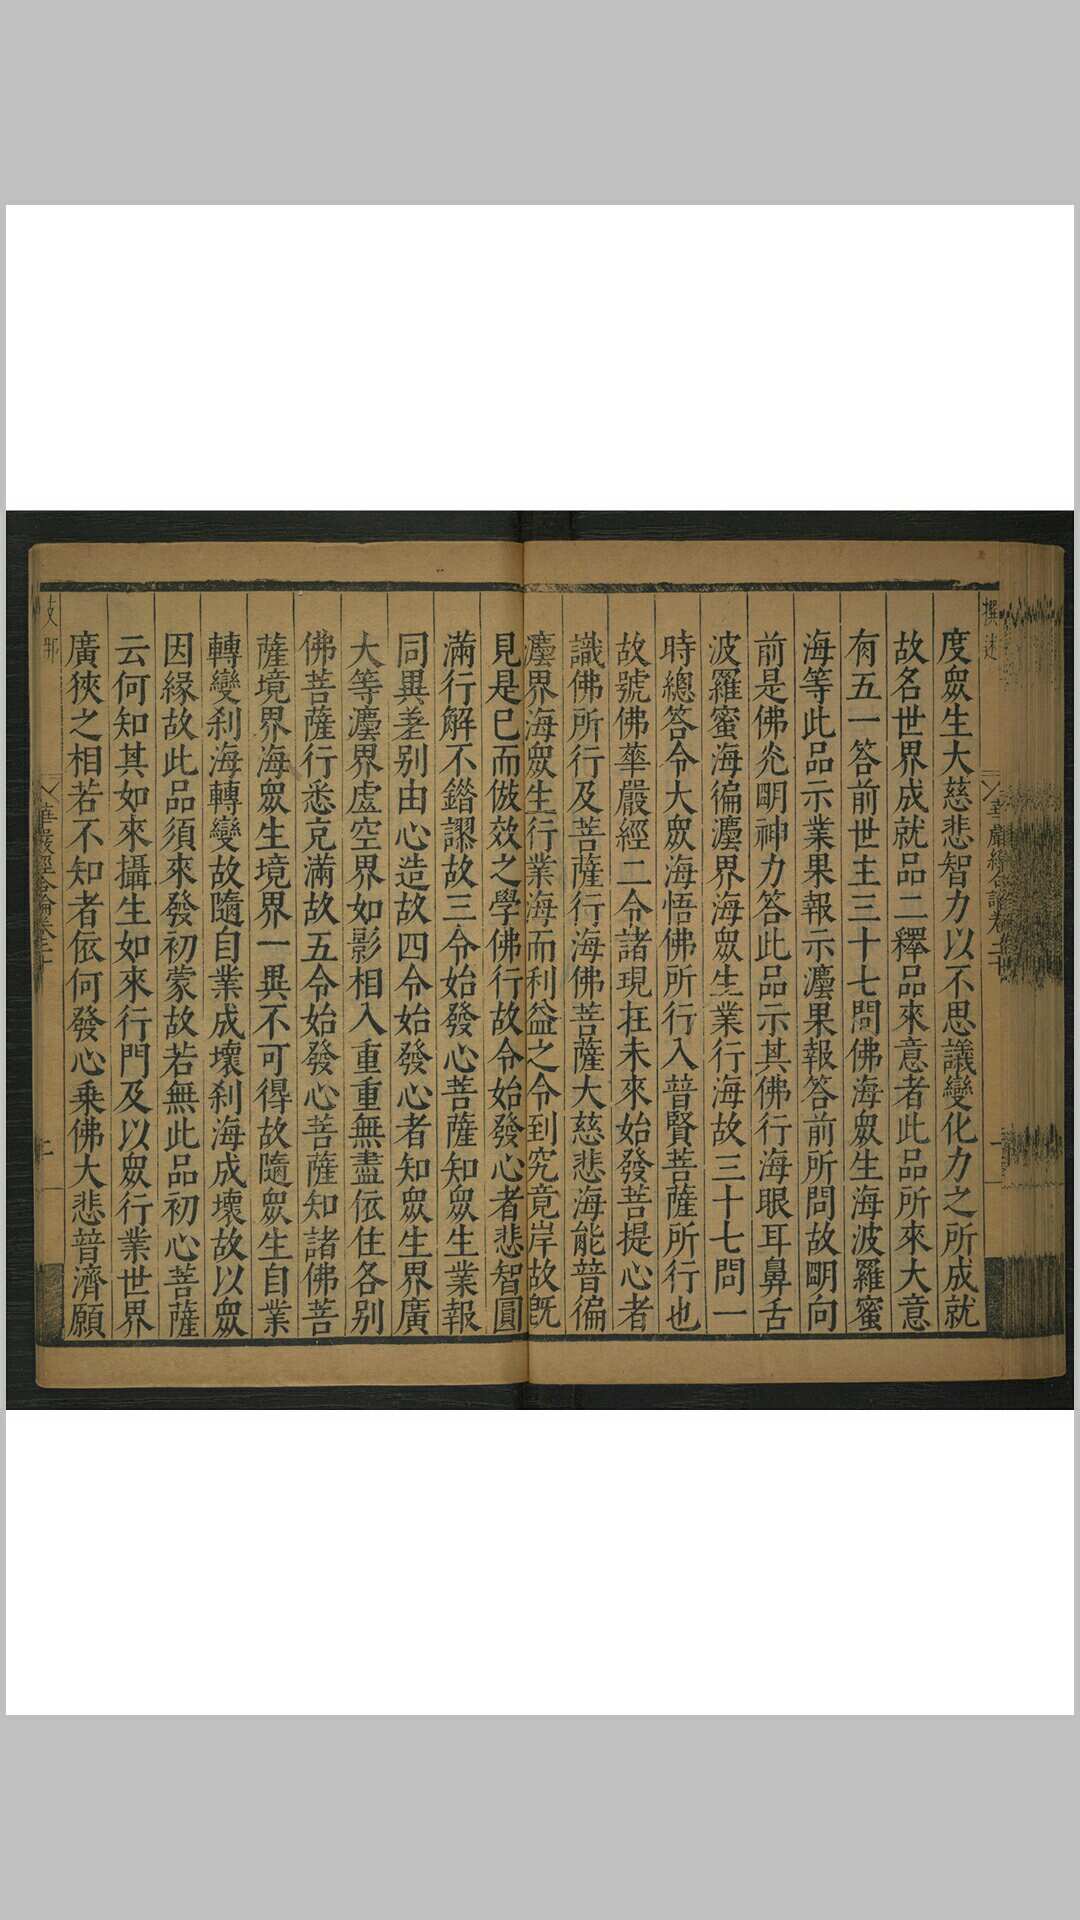 撰述
華嚴經合論卷二十
度衆生大慈悲智力以不思議變化力之所成就
故名世界成就品二釋品來意者此品所來大意
有五一答前世主三十七問佛海衆生海波羅蜜
海等此品示業果報示灋果報答前所問故朙向
前是佛光朙神力答此品示其佛行海眼耳鼻舌
波羅蜜海徧灋界海衆生業行海故三十七問一
時總答令大衆海悟佛所行入普賢菩薩所行也
故號佛華嚴經二令諸現在未來始發菩提心者
識佛所行及菩薩行海佛菩薩大慈悲海能普徧
灋界海衆生行業海而利益之令到究竟岸故旣
見是已而倣效之學佛行故令始發心者悲智圓
滿行解不錯謬故三令始發心菩薩知衆生業報
同異差别由心造故四令始發心者知衆生界廣
大等灋界虛空界如影相入重重無盡依住各别
佛菩薩行悉充滿故五令始發心菩薩知諸佛菩
薩境界海衆生境界一異不可得故隨衆生自業
轉變刹海轉變故隨自業成壞刹海成壞故以衆
因緣故此品須來發初蒙故若無此品初心菩薩
云何知其如來攝生如來行門及以衆行業世界
廣狹之相若不知者依何發心乗佛大悲普濟願
支那
華嚴經合論卷二十